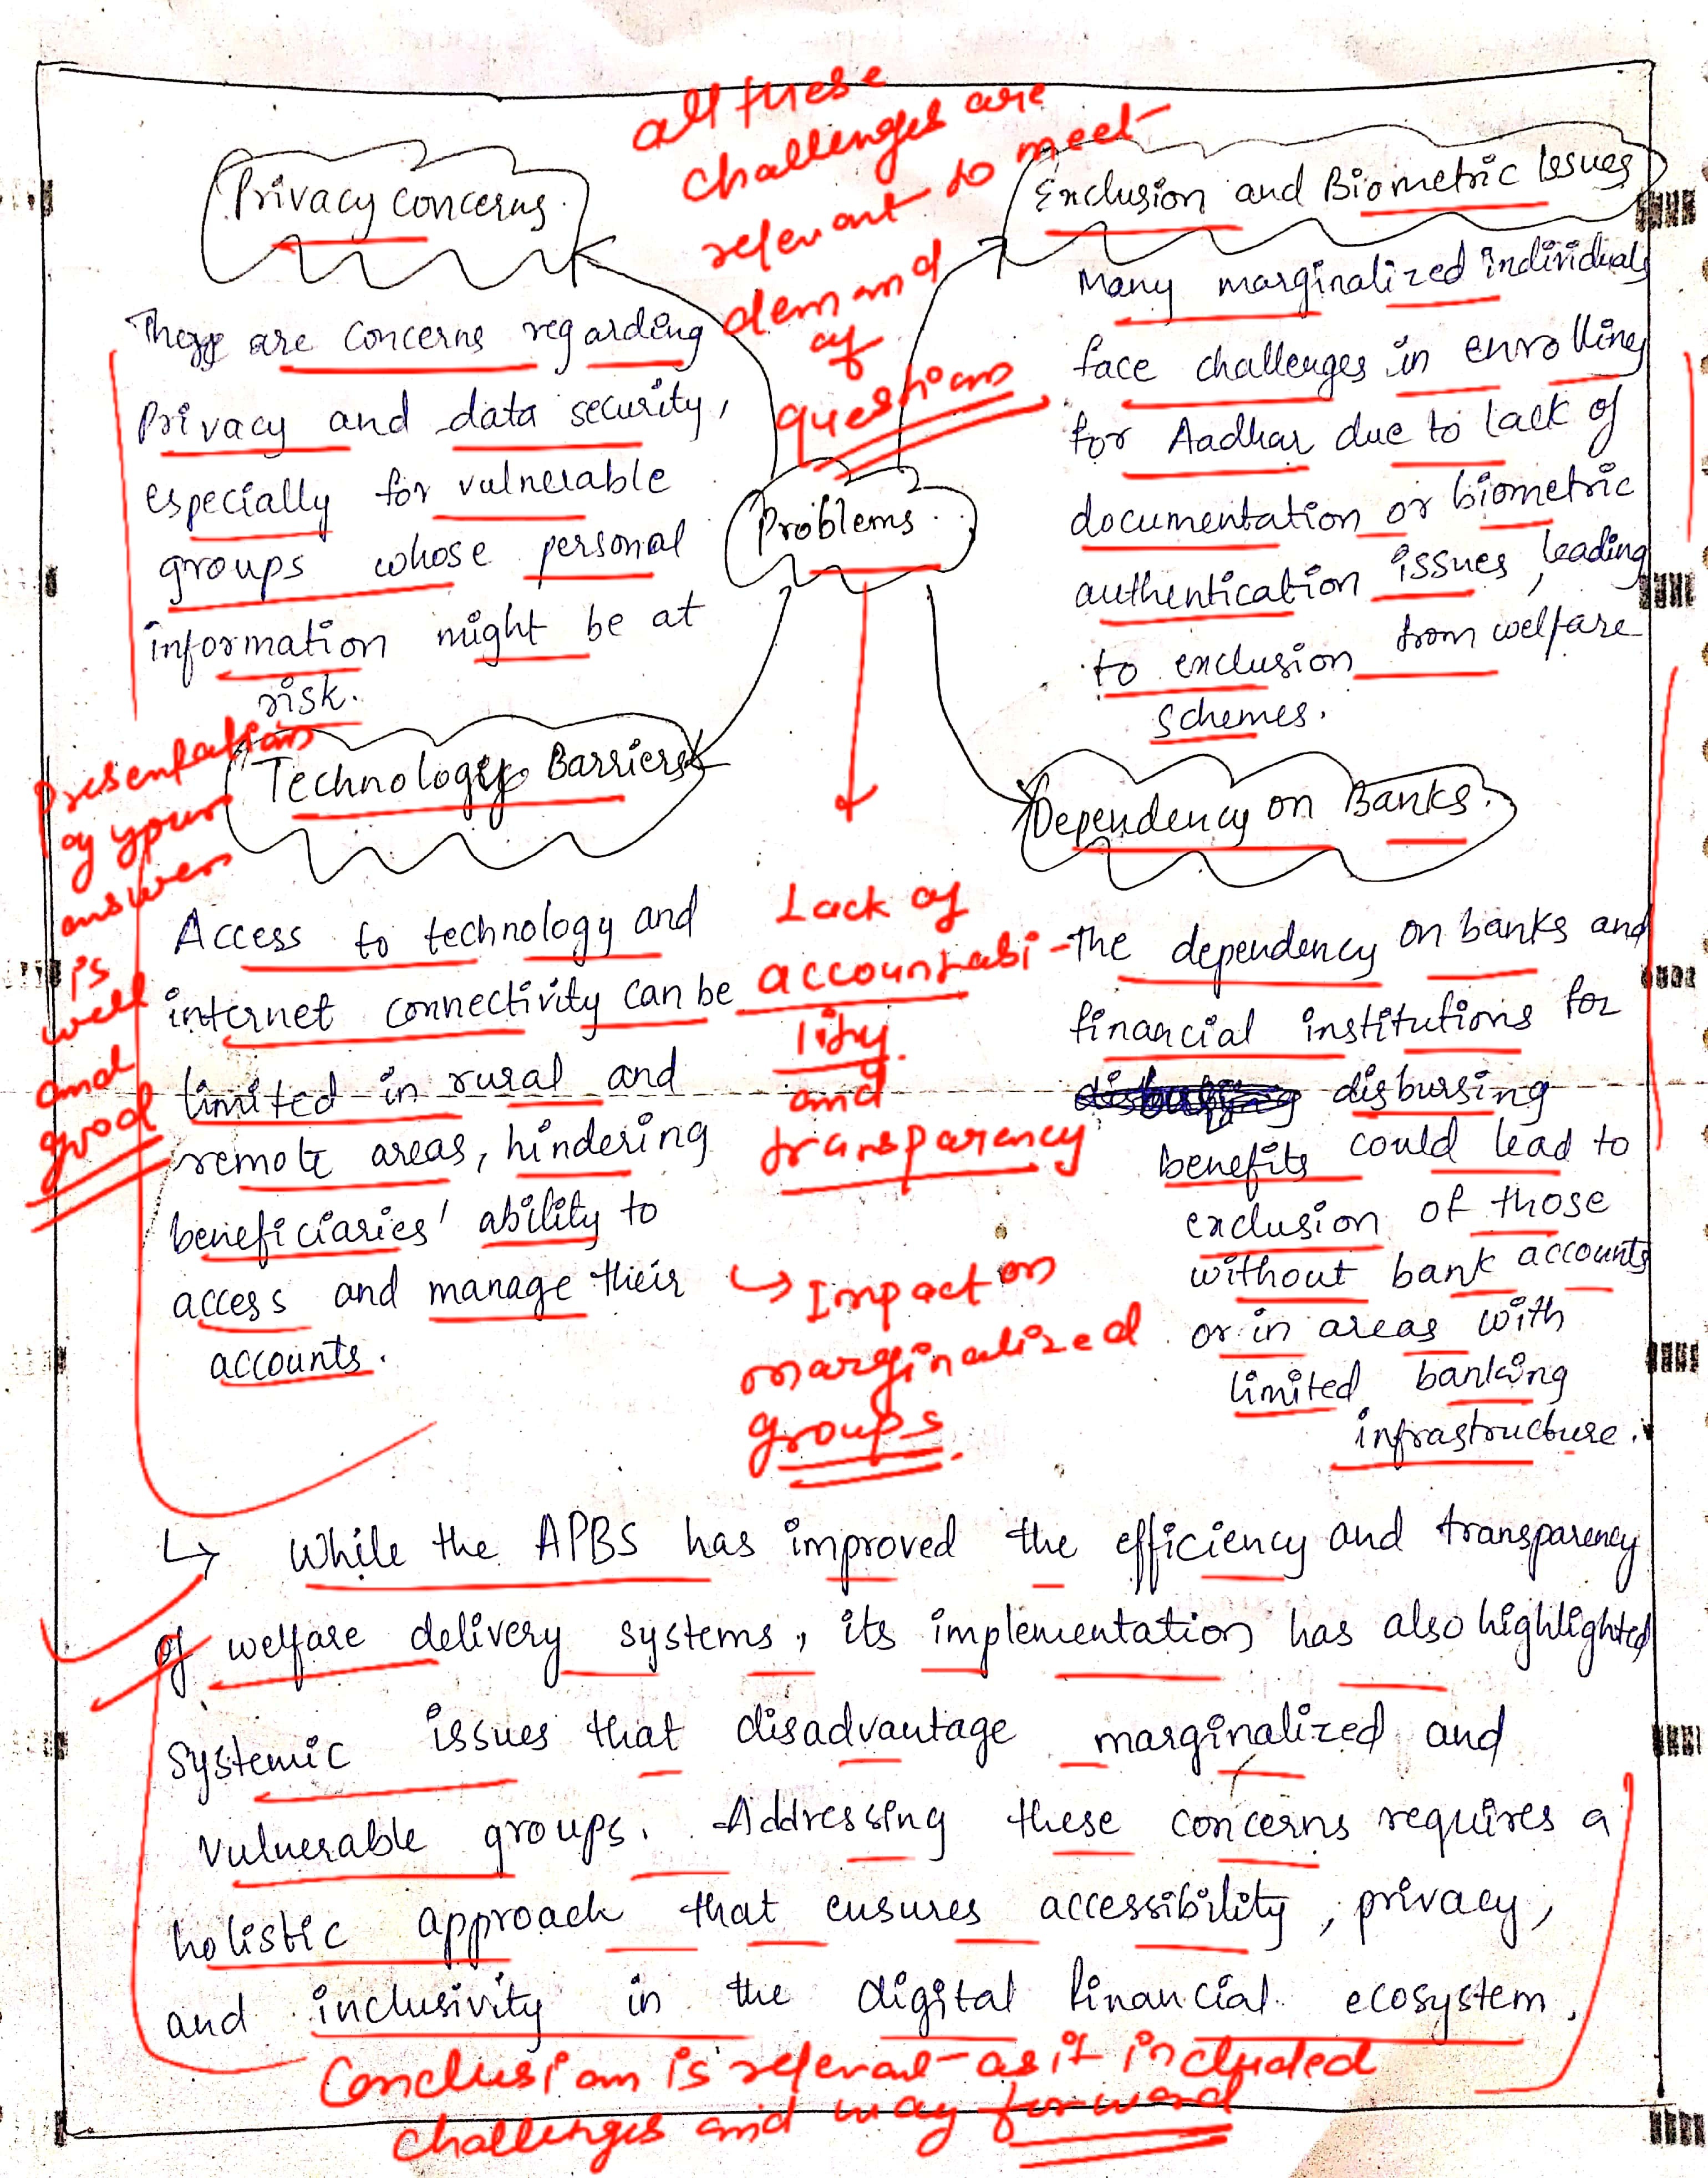 all these
challenges are
relevant to meet
demand
of
questions
Privacy concerns.
There are concerns regarding
Privacy and data security,
especially for vulnerable
groups whose personal
information might be at
risk.
Exclusion and Biometric Issues
Many marginalized individuals
face challenges in enrolling
for Aadhar due to lack of
documentation or biometric
authentication issues, leading
to exclusion from welfare
schemes.
Problems.
Presentation
of your
answer
is
well
and
good
Technology Barriers
Access to technology and
internet connectivity can be
limited in rural and
remote areas, hindering
beneficiaries' ability to
access and manage their
accounts.
Lack of
accountabi-
lity
and
transparency
↳ Impact on
marginalized
groups.
Dependency on Banks.
The dependency on banks and
financial institutions for
disbursing
benefits could lead to
exclusion of those
without bank accounts
or in areas with
limited banking
infrastructure.
↳ While the APBS has improved the efficiency and transparency
of welfare delivery systems, its implementation has also highlighted
systemic issues that disadvantage marginalized and
vulnerable groups. Addressing these concerns requires a
holistic approach that ensures accessibility, privacy,
and inclusivity in the digital financial ecosystem.
Conclusion is relevant as it included
challenges and way forward